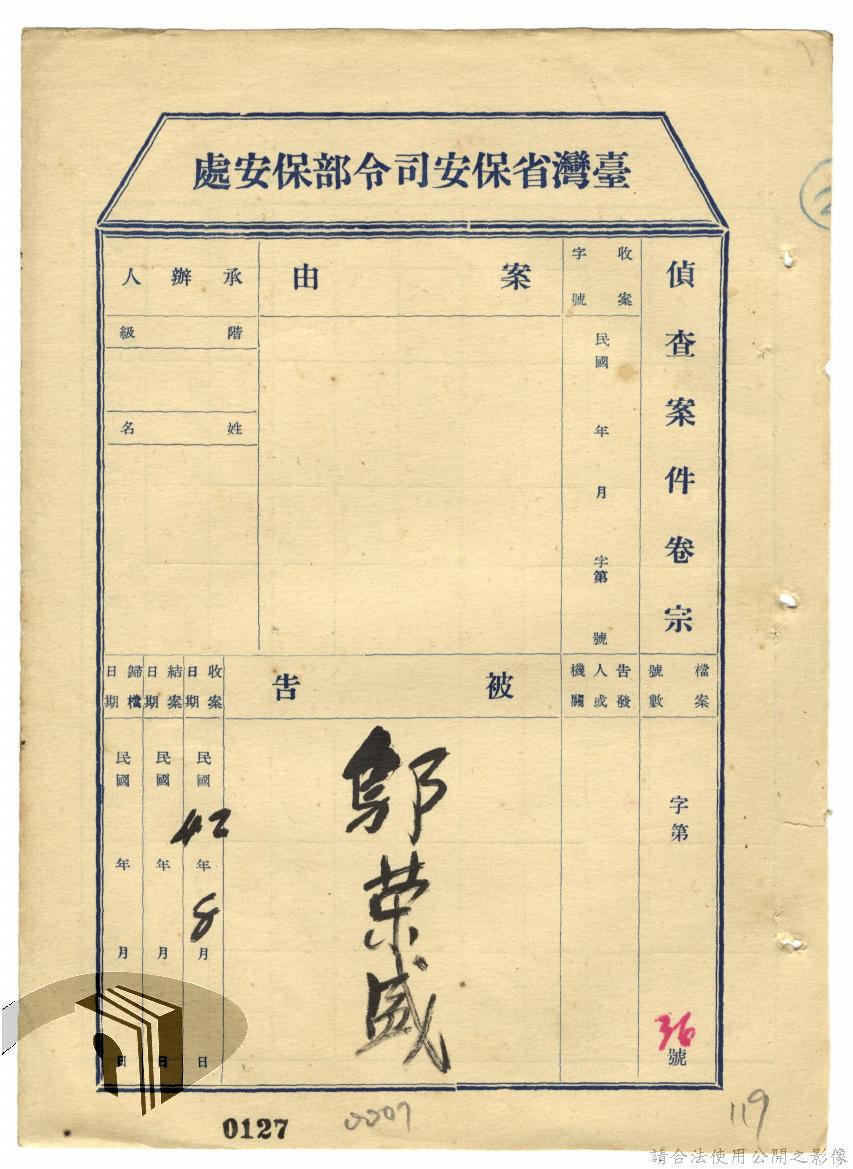 臺灣省保安司令部保安處
偵查案件卷宗
收案字號
民國 年 月 字第 號
案由
承辦人
階級
姓名
檔案號數
字第 36 號
告發人或機關
被告
鄔荣盛
收案日期
民國 42 年 8 月 日
結案日期
民國 年 月 日
歸檔日期
民國 年 月 日
0127
0007
119
請合法使用公開之影像